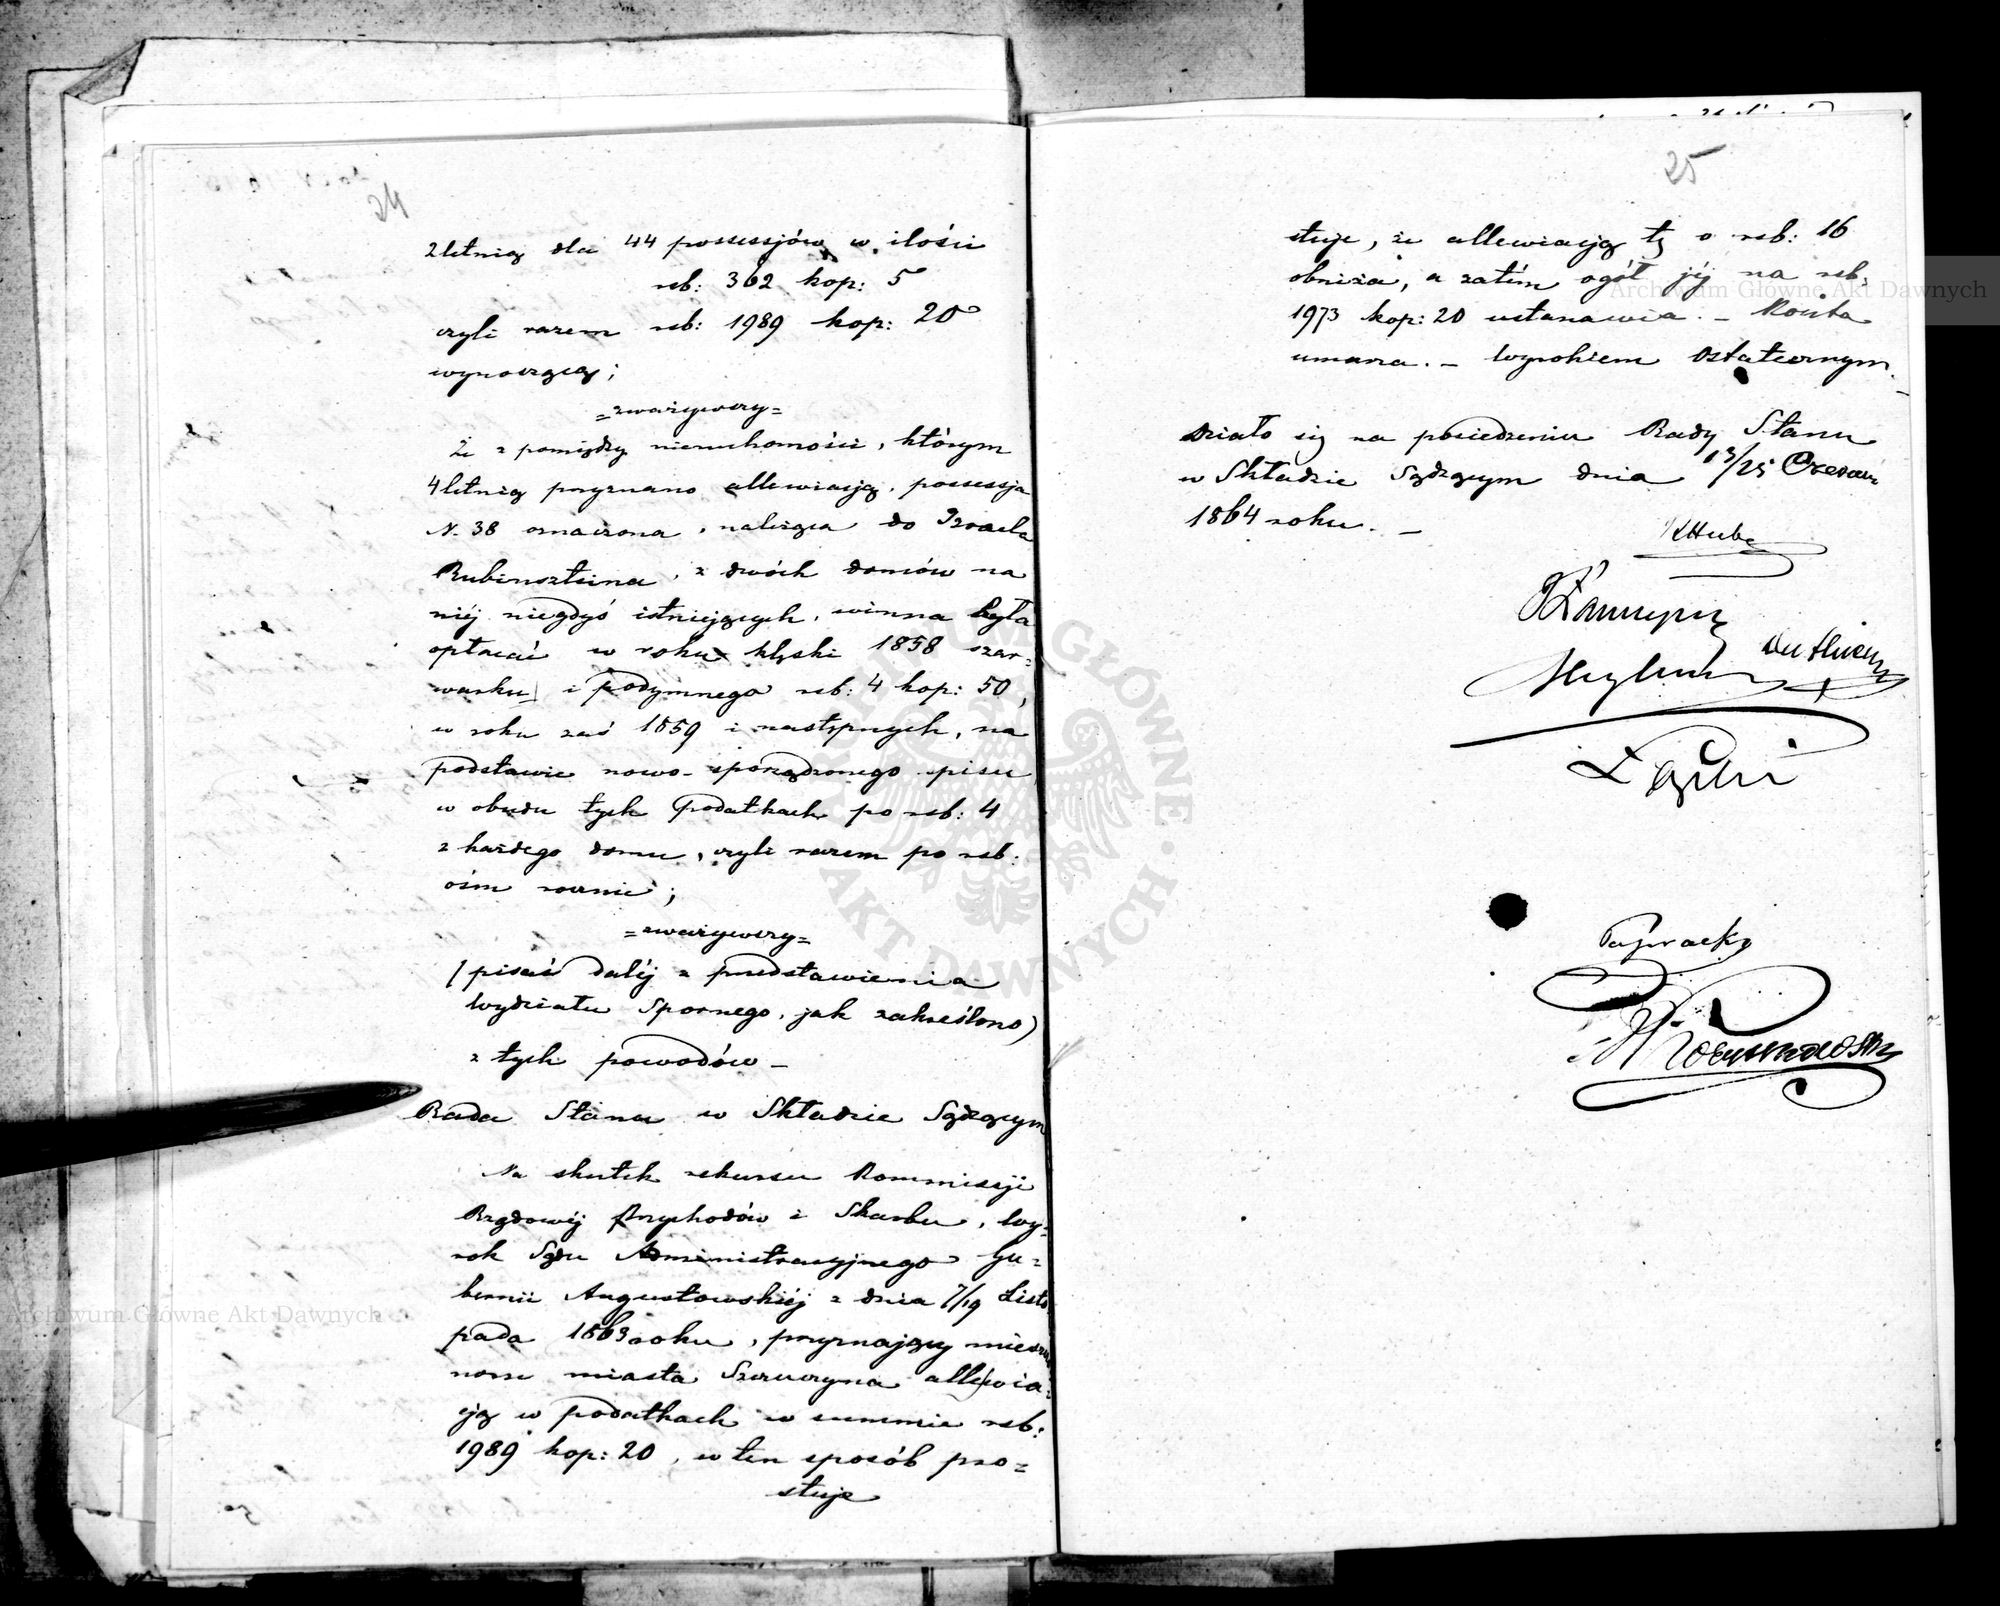 2letnią dla 44 possessjów w ilości
rsb: 362 kop: 5
czyli razem rsb: 1989 kop: 20
wynoszącą;
=zważywszy=
Że z pomiędzy nieruchomości, którym
4letnią przyznano allewiacją, possessja
N. 38 oznaczona, należąca do Izraela
Rubinszteina, z dwóch domów na
niéj niegdyś istniejących, winna była
opłacać w roku klęski 1858 szar=
warku i podymnego rsb: 4 kop: 50,
w roku zaś 1859 i następnych, na
podstawie nowo-sporządzonego spisu
w obudu tych podatkach po rsb: 4
z każdego domu, czyli razem po rsb:
ośm rocznie;
=zważywszy=
(pisać daléj z przedstawienia
Wydziału Spornego, jak zakreślono)
z tych powodów –
Rada Stanu w Składzie Sądzącym
Na skutek rekursu Kommissji
Rządowéj Przychodów i Skarbu, Wy=
rok Sądu Administracyjnego Gu=
bernii Augustowskiéj z dnia 7/19 Listo
pada 1863 roku, przyznający miesz
nom miasta Szczuczyna allewia=
cją w podatkach w summie rsb:
1989 kop: 20, w ten sposób pro=
stuje
25
stuje, że allewiacją tę o rsb: 16
obniża, a zatém ogół jéj na rsb:
1973 kop: 20 ustanawia. – Koszta
umarza. – Wyrokiem Ostatecznym.
Działo się na posiedzeniu Rady Stanu
w Składzie Sądzącym dnia 13/25 Czerwca
1864 roku. –
KHube
Archiwum Główne Akt Dawnych
Archiwum Główne Akt Dawnych
ARCHIWUM GŁÓWNE AKT DAWNYCH